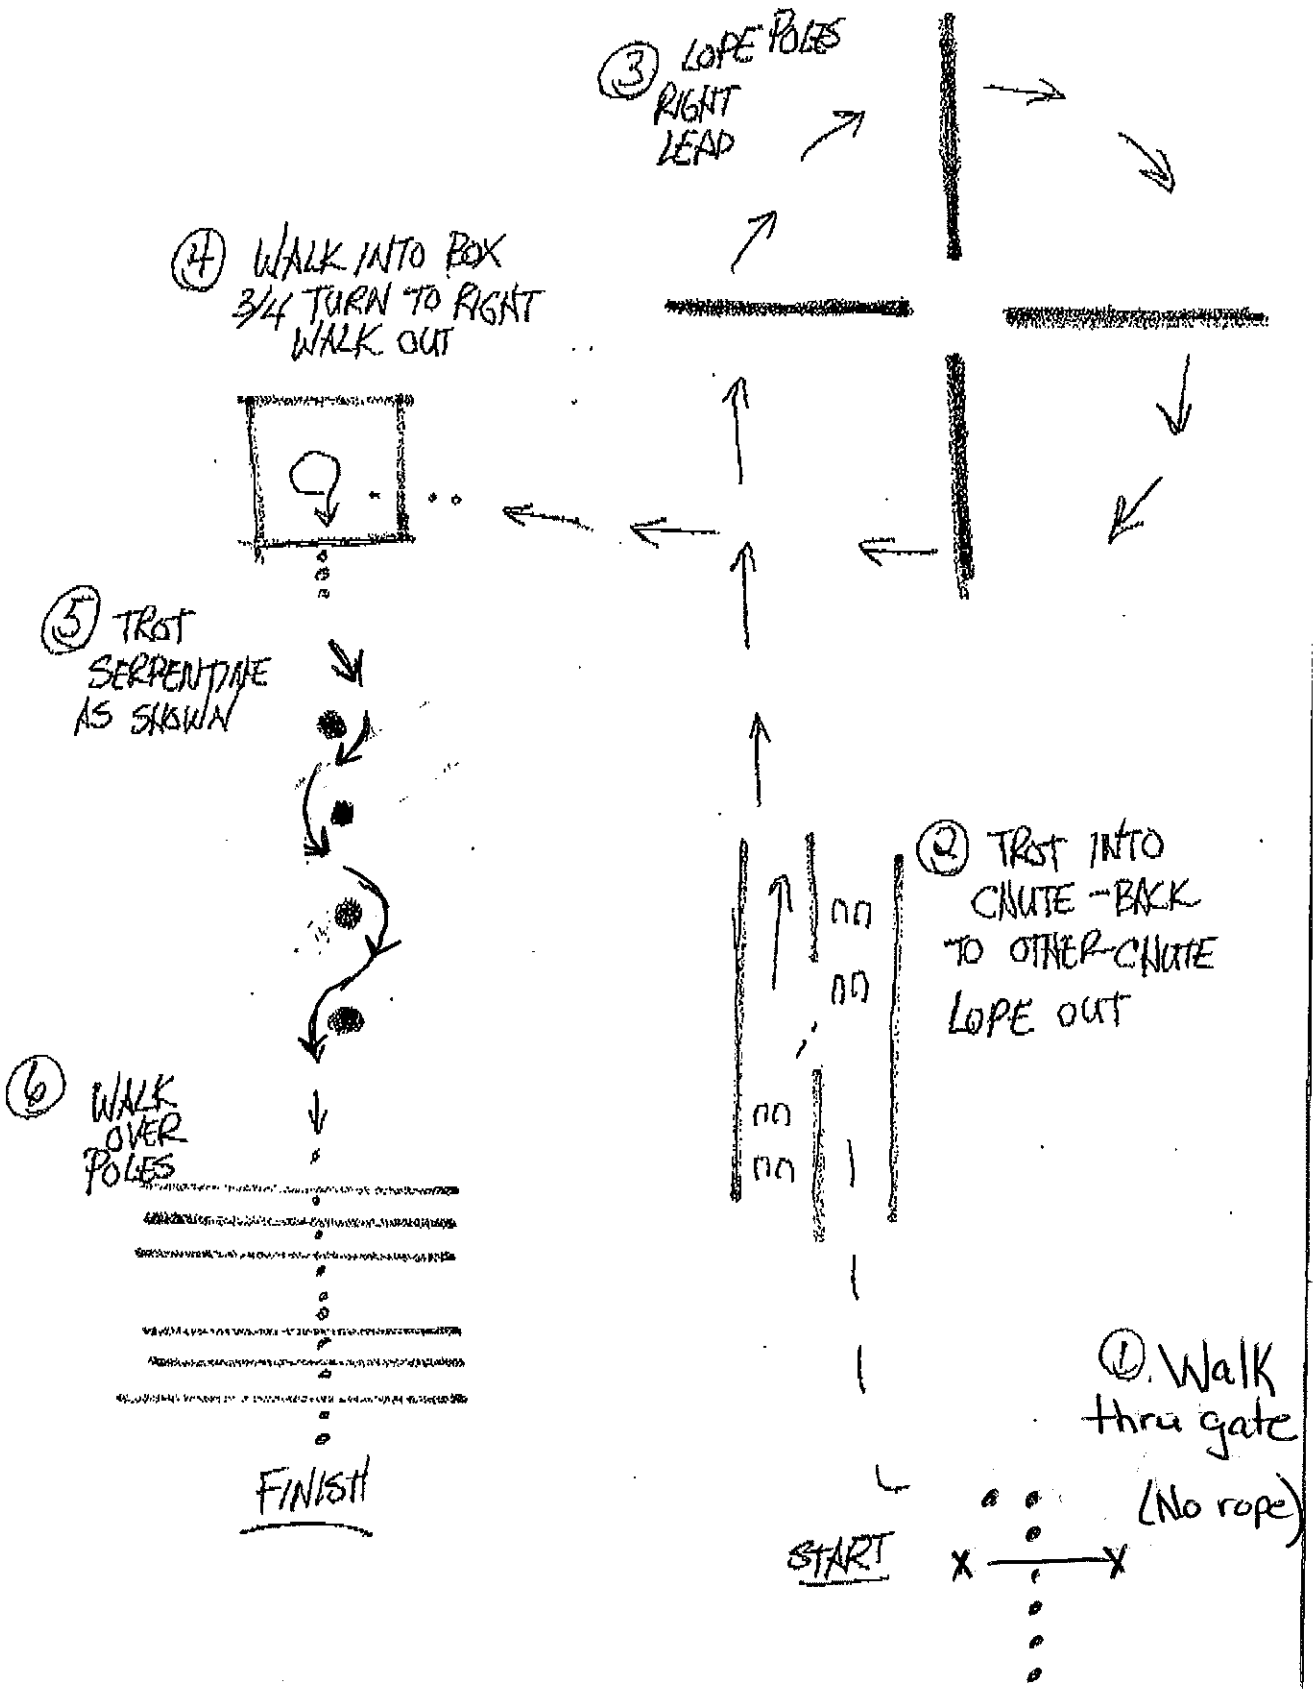 ③ LOPE POLES
RIGHT
LEAD
④ WALK INTO BOX
3/4 TURN TO RIGHT
WALK OUT
⑤ TROT
SERPENTINE
AS SHOWN
② TROT INTO
CHUTE - BACK
TO OTHER CHUTE
LOPE OUT
⑥ WALK
OVER
POLES
①. Walk
thru gate
(No rope)
FINISH
START
X X